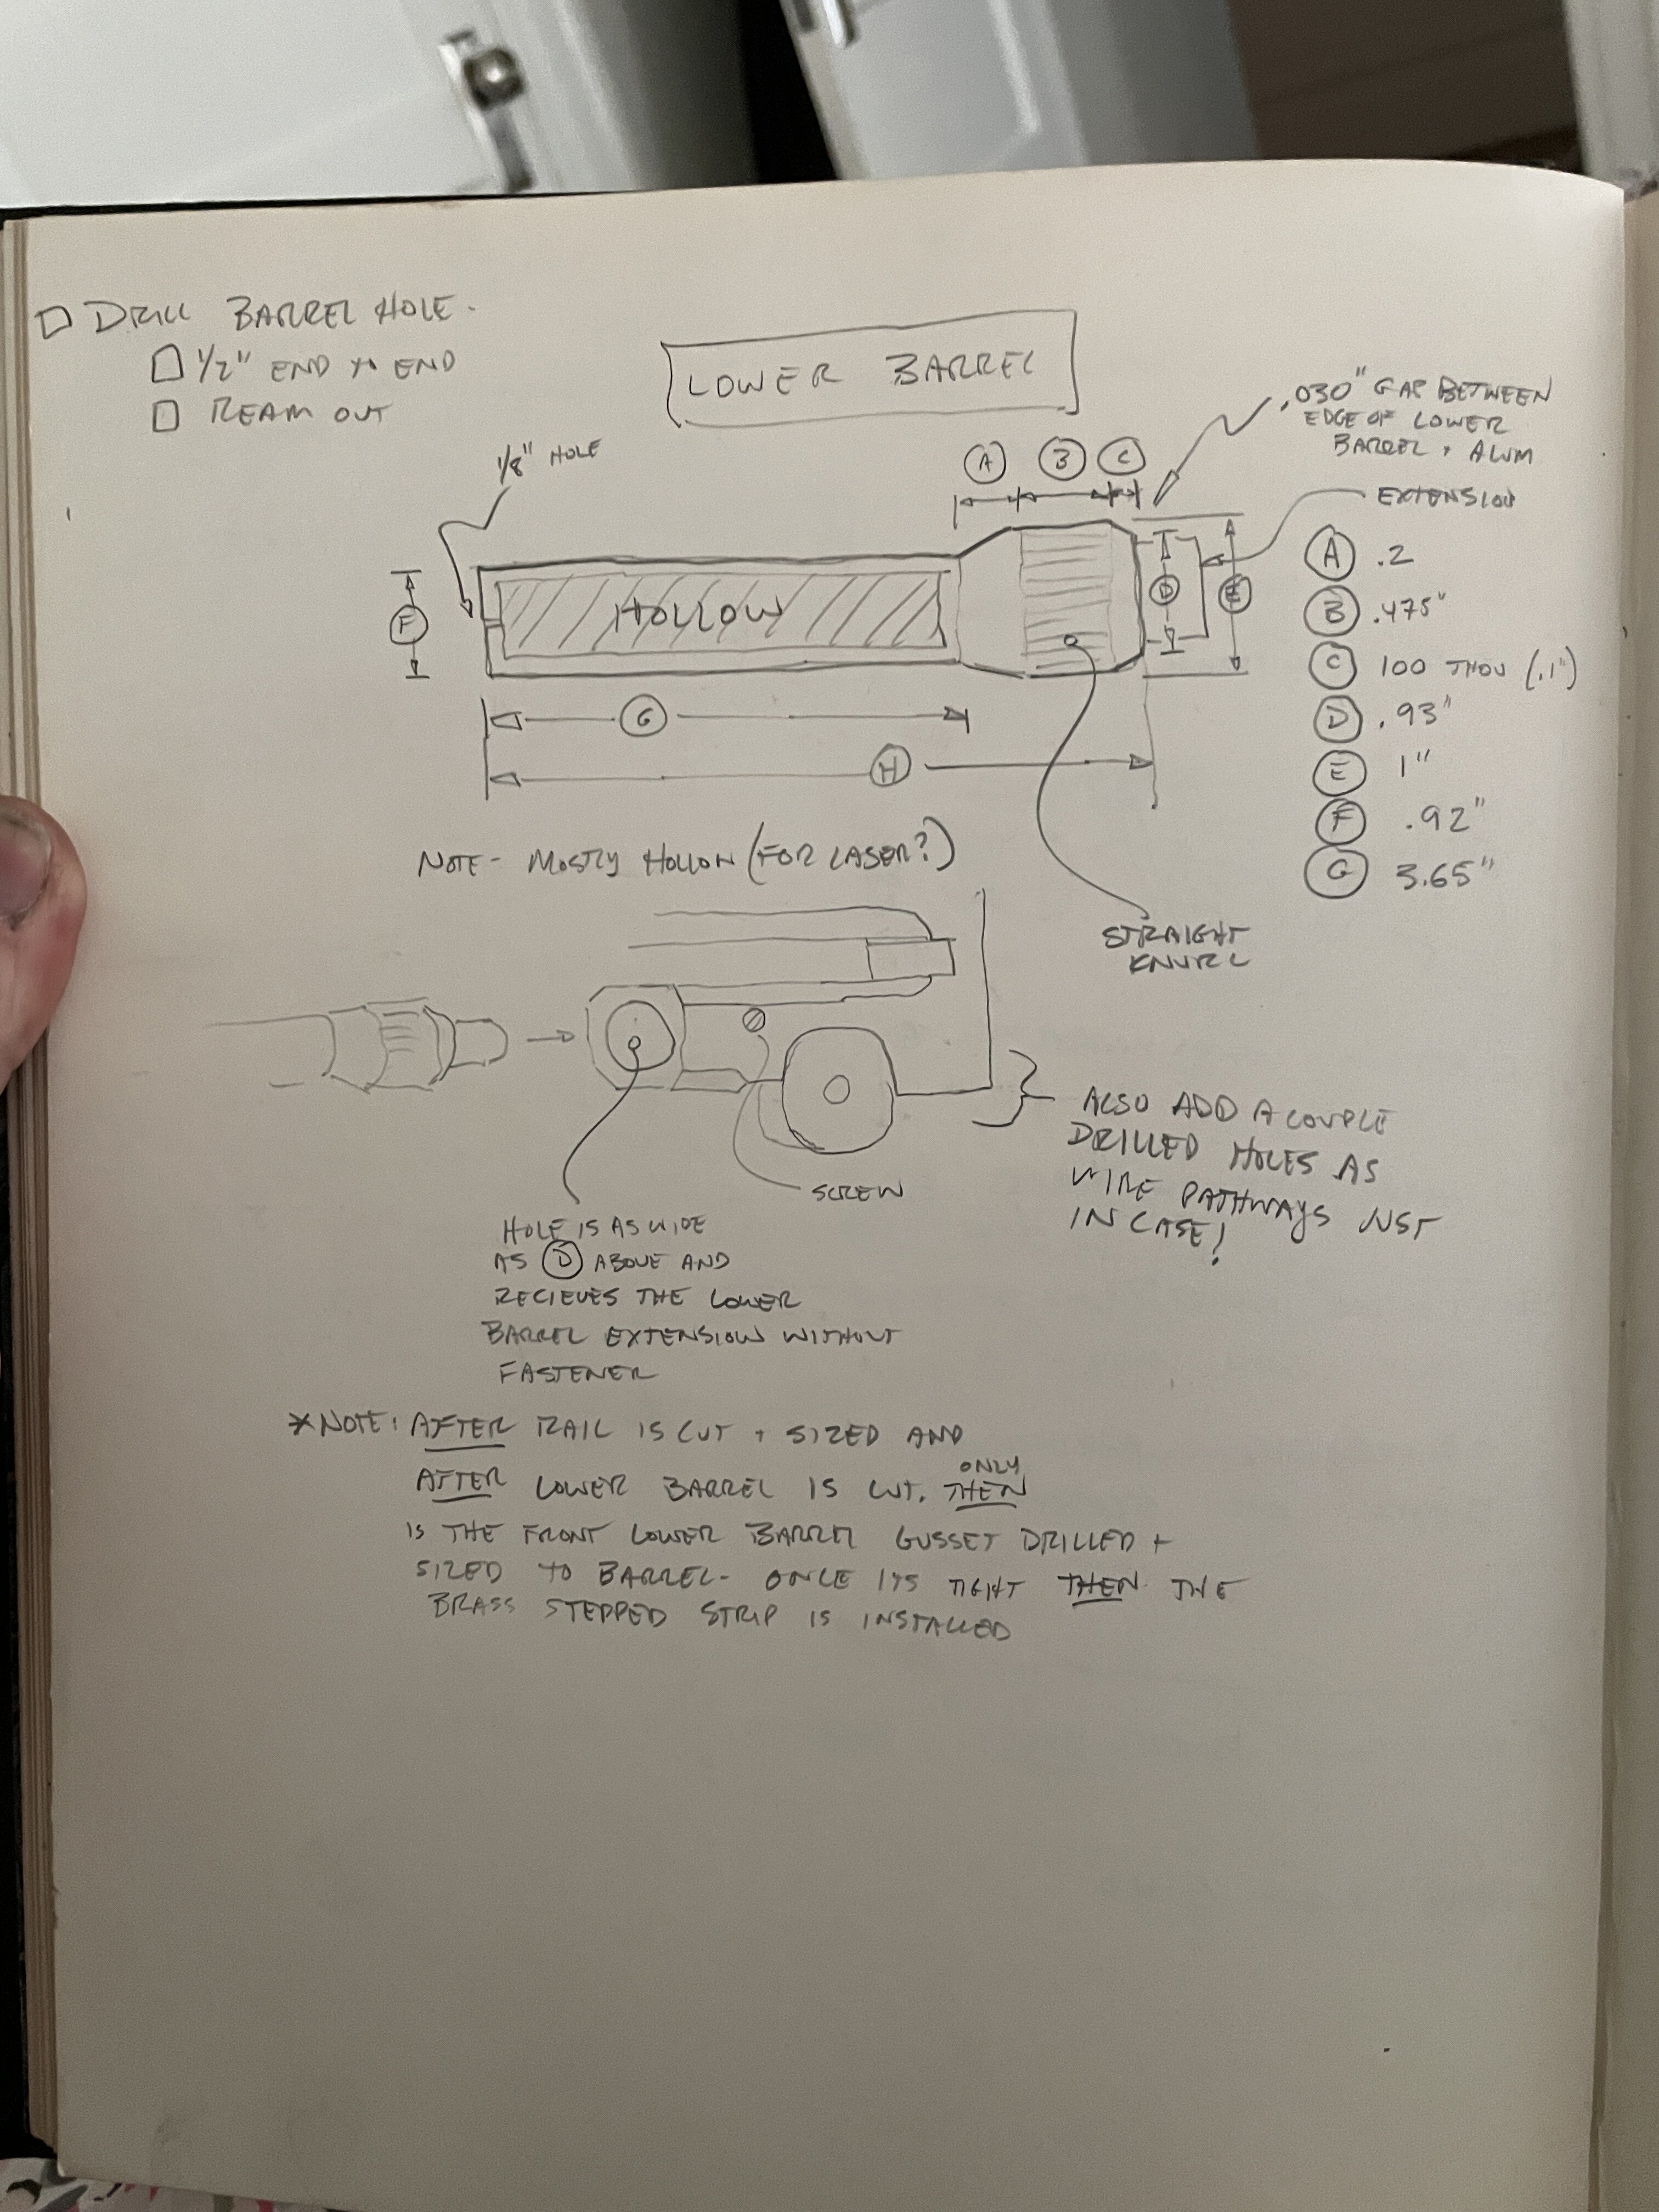 □ DRILL BARREL HOLE.
□ 1/2" END TO END
□ REAM OUT
LOWER BARREL
.030" GAP BETWEEN
EDGE OF LOWER
BARREL + ALUM
1/8" HOLE
A B C
EXTENSION
HOLLOW
F
D
E
G
H
A .2
B .475"
C 100 THOU (.1")
D .93"
E 1"
F .92"
G 3.65"
NOTE- MOSTLY HOLLOW (FOR LASER?)
STRAIGHT
KNURL
SCREW
ALSO ADD A COUPLE
DRILLED HOLES AS
WIRE PATHWAYS JUST
IN CASE!
HOLE IS AS WIDE
AS D ABOVE AND
RECIEVES THE LOWER
BARREL EXTENSION WITHOUT
FASTENER
*NOTE: AFTER RAIL IS CUT + SIZED AND
AFTER LOWER BARREL IS CUT. ONLY THEN
IS THE FRONT LOWER BARREL GUSSET DRILLED +
SIZED TO BARREL- ONCE ITS TIGHT THEN THE
BRASS STEPPED STRIP IS INSTALLED